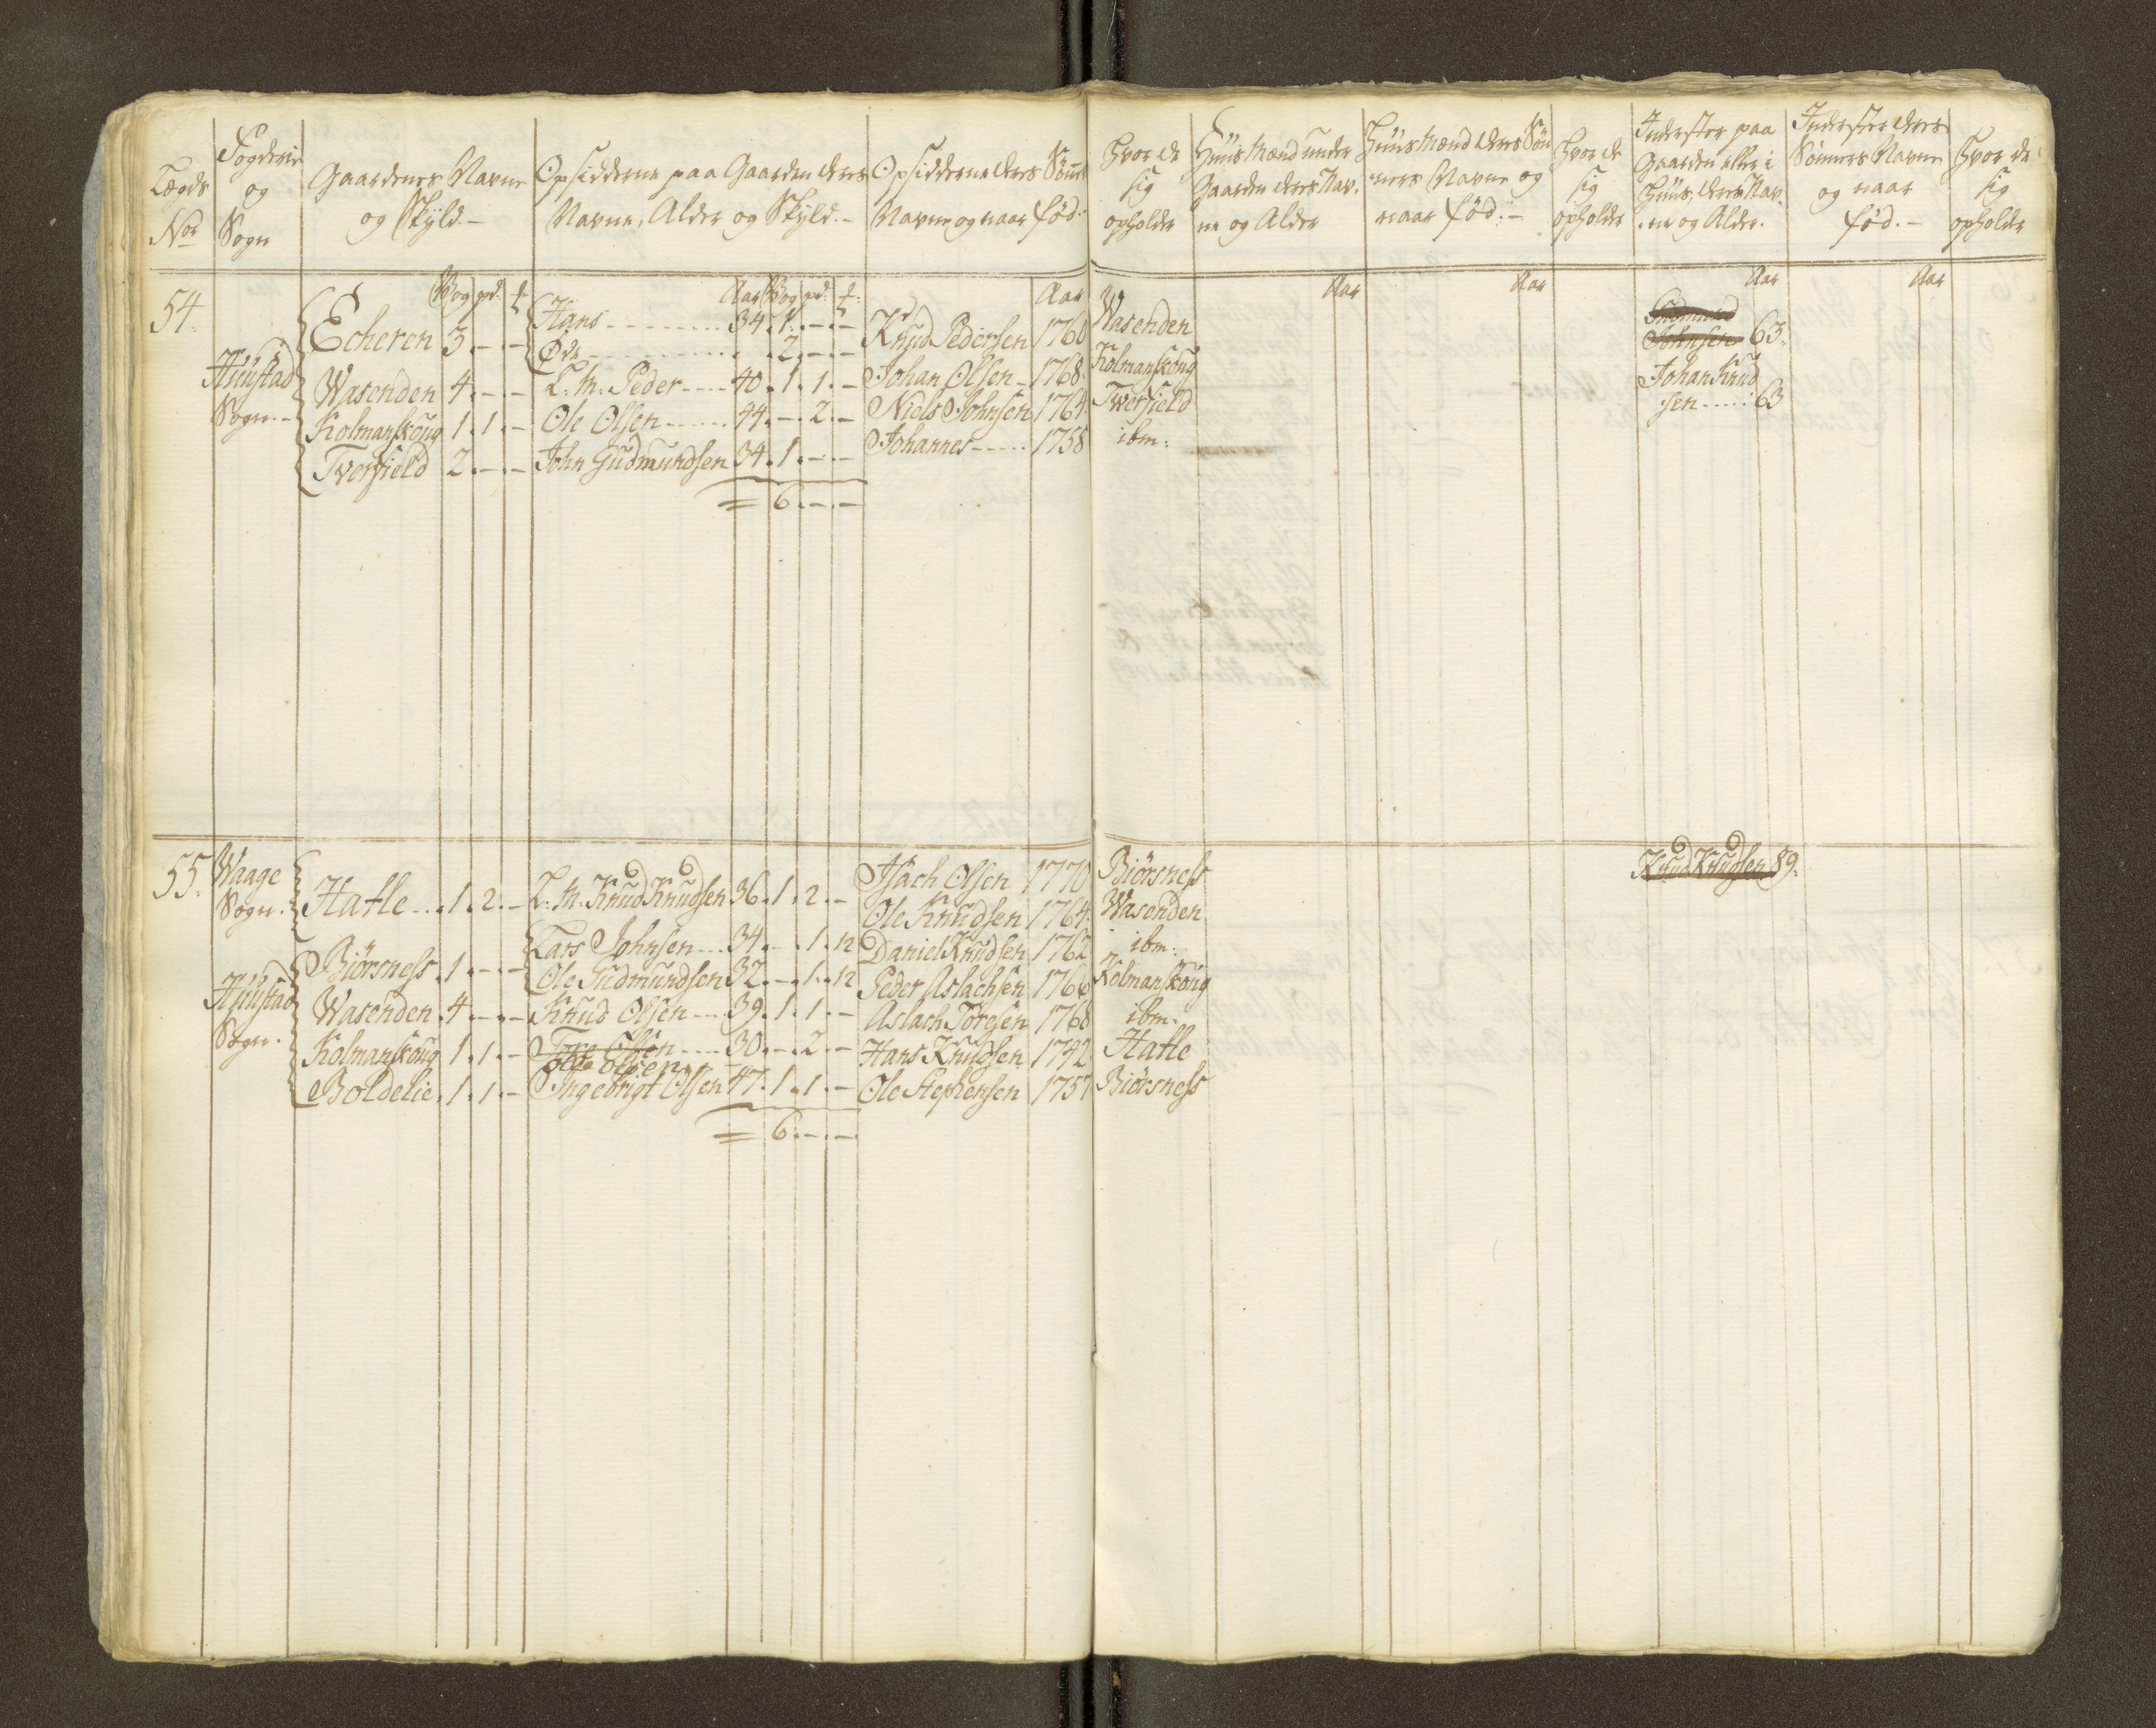 Lægds
No
Fogderie
og
Sogn
Gaardenes Navne
og Skyld.
Opsidderne paa Gaarden deres
Navne, Alder og Skyld.
Opsidderne deres Sønners
Navne og naar fød.
Hvor de
sig
opholder
Huus Mænd under
Gaarden deres Nav-
ne og Alder
Huus Mænd deres Søn
ners Navne og
naar fød.
Hvor de
sig
opholder
Inderster paa
Gaarden eller i
Huus, deres Nav-
ne og Alder.
Inderster deres
Sønners Navne
og naar
fød.
Hvor de
sig
opholder
Wog pd.
Aar Wog pd.
Aar
Aar
Aar
Aar
Aar
54.
Huustad
Sogn.
Echeren 3 . - . -
Hans - - - 34 . 1 . - . -
Øde - - - 2 . - . -
Knud Pedersen 1760
Wasenden
Johnsen 63.
Wasenden 4 . - . -
L. M. Peder - - 40 . 1 . 1 . -
Johan Olsen - 1768
Kolmanskoug
Johan Knud
sen - - - 63
Kolmanskoug 1 . 1 . -
Ole Olsen - - - 44 . - . 2 . -
Niels Johnsen 1764
Twerfield
Tverfield 2 . - . -
John Gudmundsen 34 . 1 . - . -
Johannes - - - 1758
ibm:
= 6 . - . -
55.
Waage
Sogn.
Hatle . . 1 . 2 . -
L. M. Knud Knudsen 36 . 1 . 2 . -
Isach Olsen 1770
Biörsness
Knud Knudsen 89.
Ole Knudsen 1764.
Wasenden
Huustad
Sogn.
Biörsness . 1 . - . -
Lars Johnsen - - 34 . - . 1 . 12
Daniel Knudsen 1762
ibm:
Ole Gudmundsen 32 . - . 1 . 12
Peder Aslachsen 1766
Kolmanskoug
Wasenden . 4 . - . -
Knud Olsen - - 39 . 1 . 1 . -
Aslach Toresen 1768
ibm.
Kolmanskoug 1 . 1 . -
Tore Olsen - - - 30 . - . 2 . -
ole olsen
Hans Knudsen 1742
Hatle
Boldelie . 1 . 1 . -
Ingebrigt Olsen 47 . 1 . 1 . -
Ole Stephensen 1757
Biörsness
= 6 . - . -